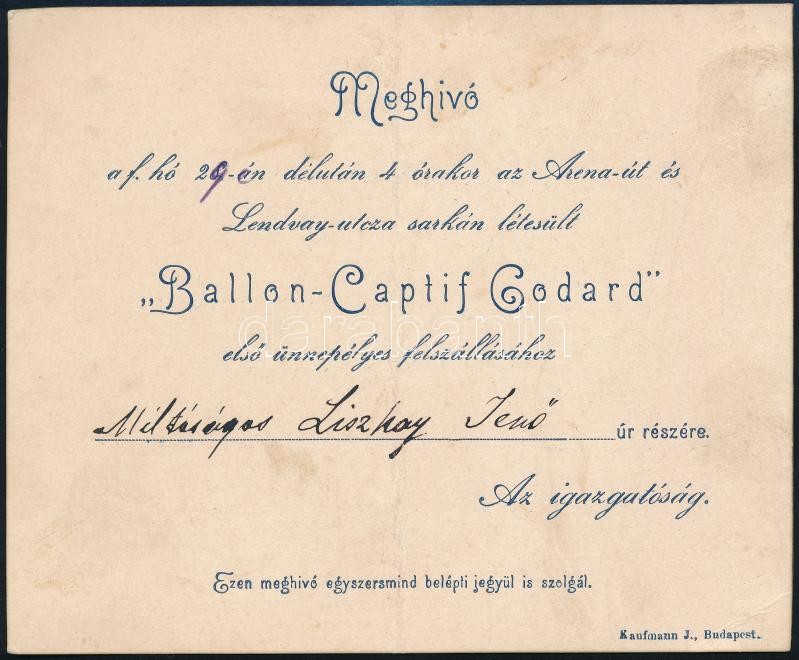 Meghivó
a f. hó 29-én délután 4 órakor az Arena-út és
Lendvay-utcza sarkán létesült
„Ballon-Captif Godard”
darabanth
első ünnepélyes felszállásához
Méltóságos Liszkay Jenő úr részére.
Az igazgatóság.
Ezen meghivó egyszersmind belépti jegyül is szolgál.
Kaufmann J., Budapest.